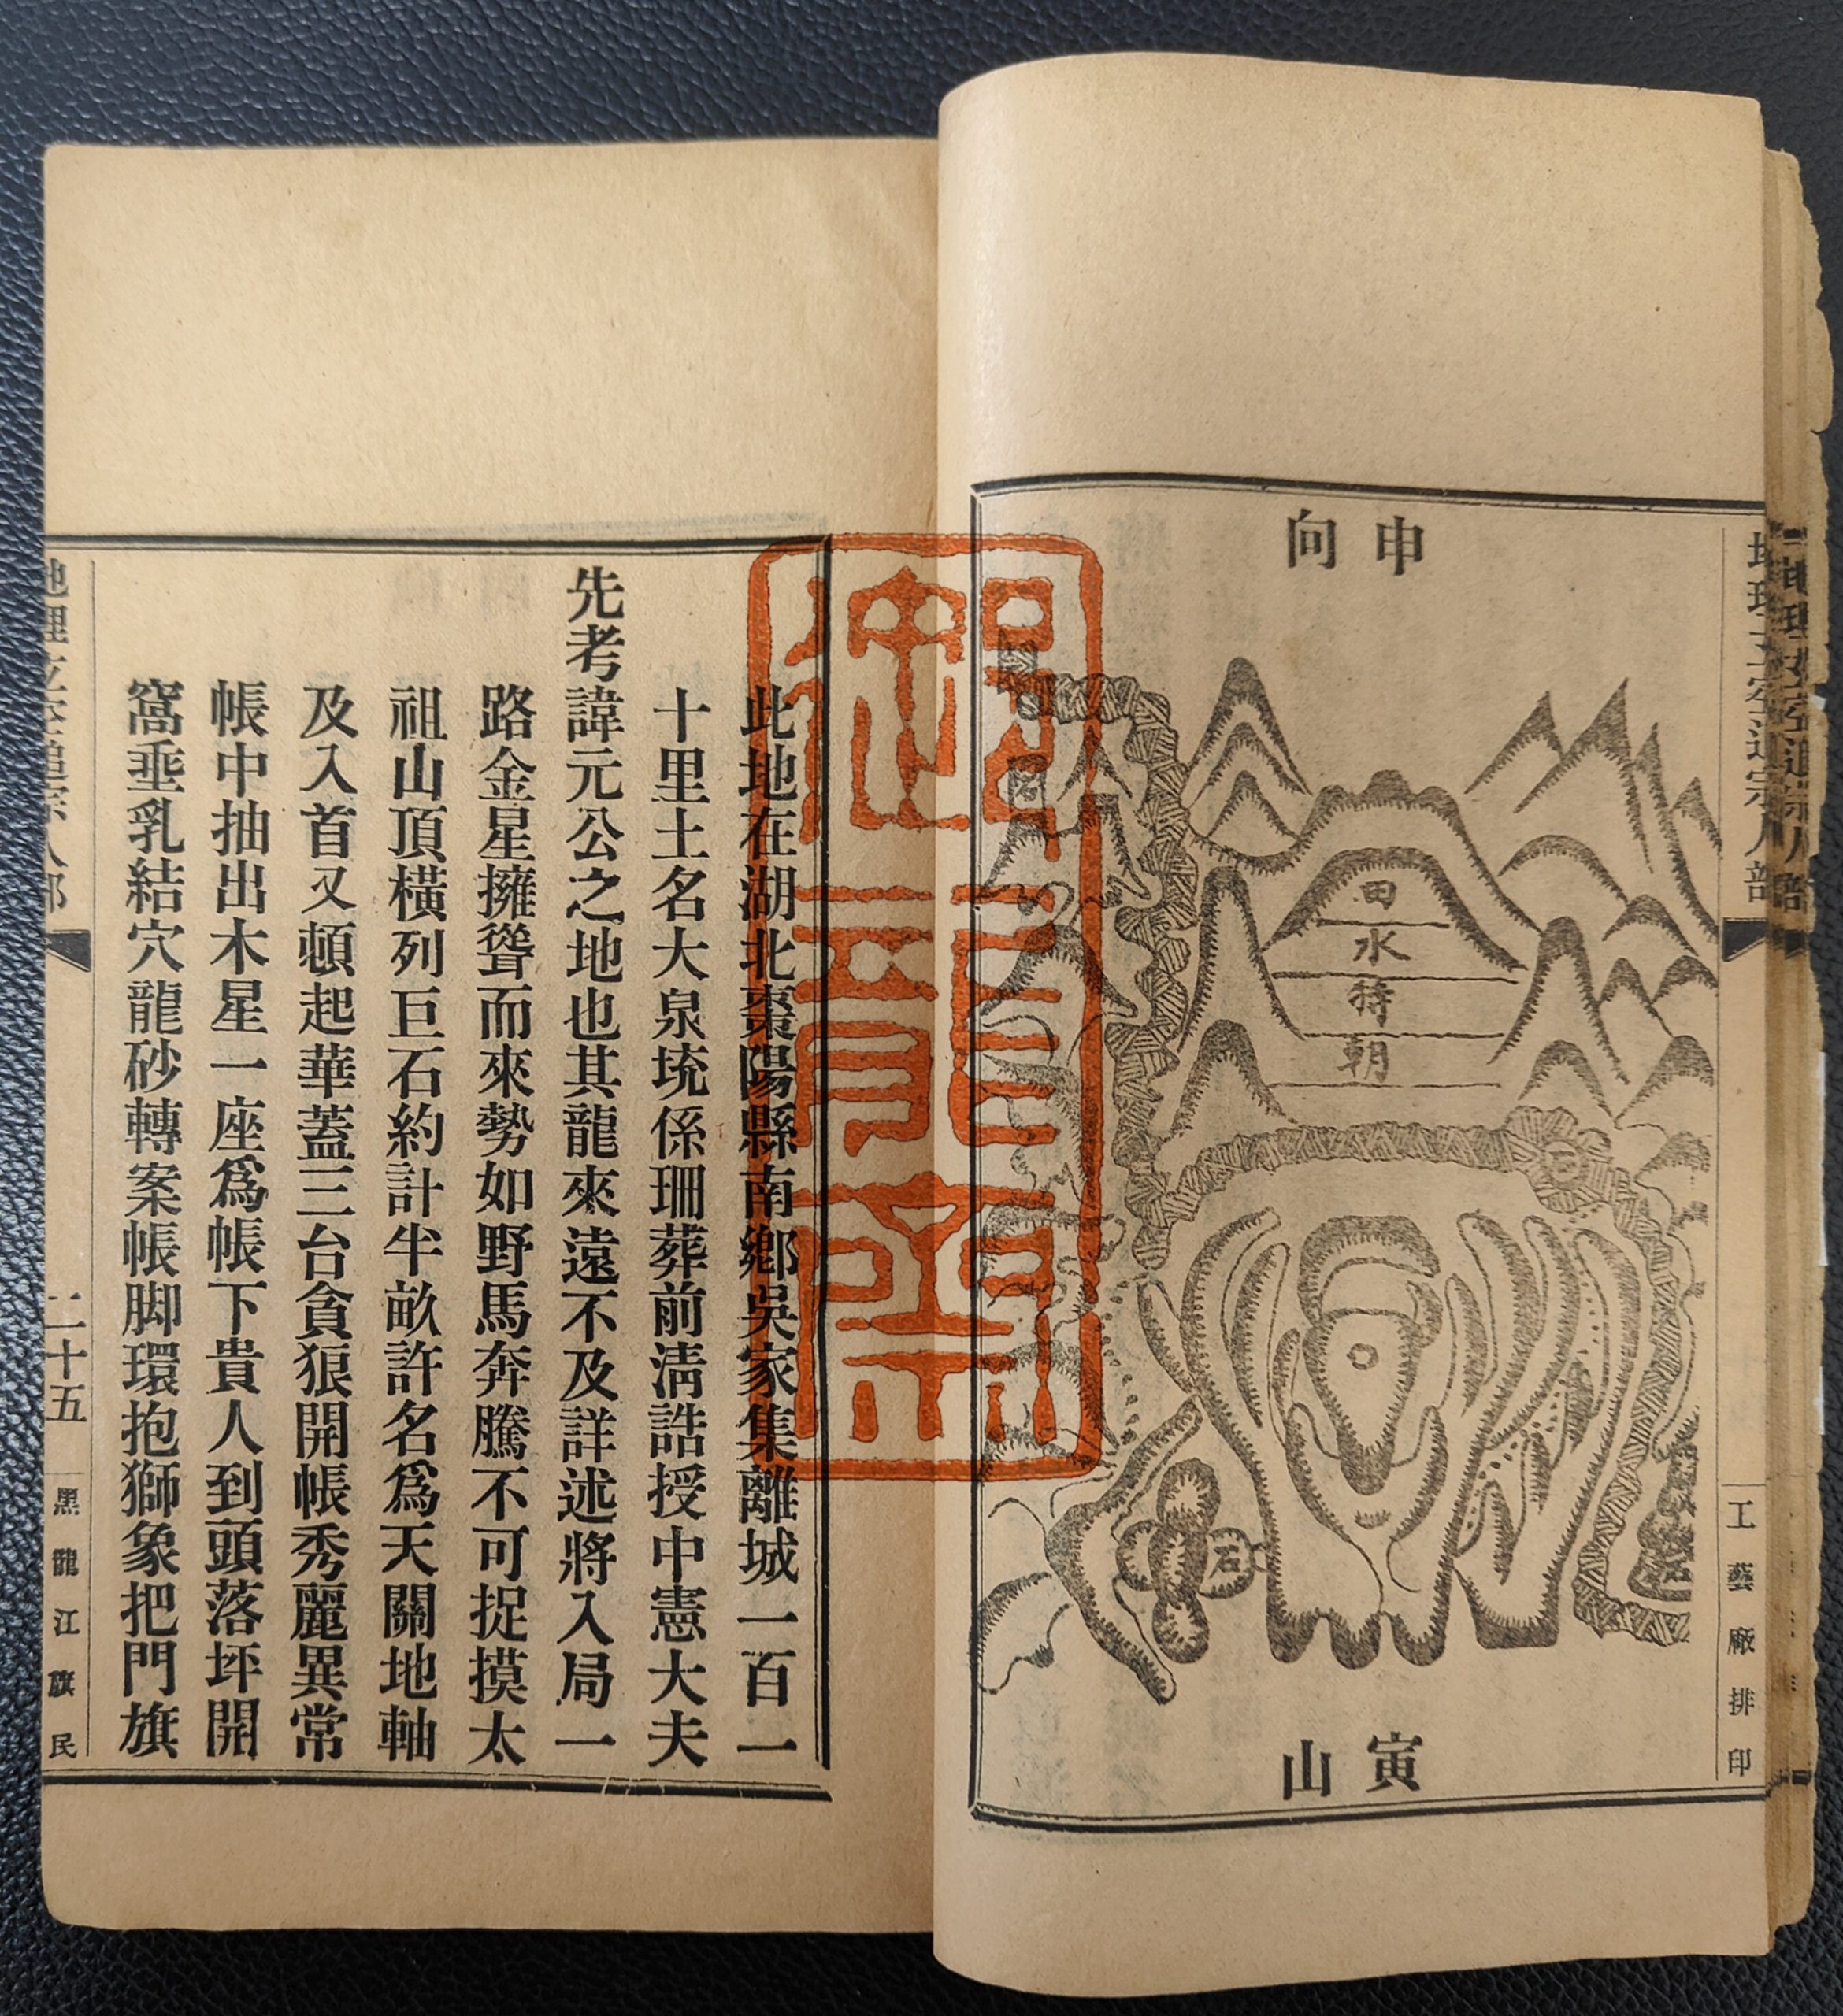 申向
田水特朝
石
寅山
工藝廠排印
此地在湖北棗陽縣南鄉吳家集離城一百一
十里土名大泉垸係珊葬前清誥授中憲大夫
先考諱元公之地也其龍來遠不及詳述將入局一
路金星擁聳而來勢如野馬奔騰不可捉摸太
祖山頂橫列巨石約計半畝許名爲天關地軸
及入首又頓起華蓋三台貪狼開帳秀麗異常
帳中抽出木星一座爲帳下貴人到頭落坪開
窩垂乳結穴龍砂轉案帳脚環抱獅象把門旗
二十五
黑龍江旗民